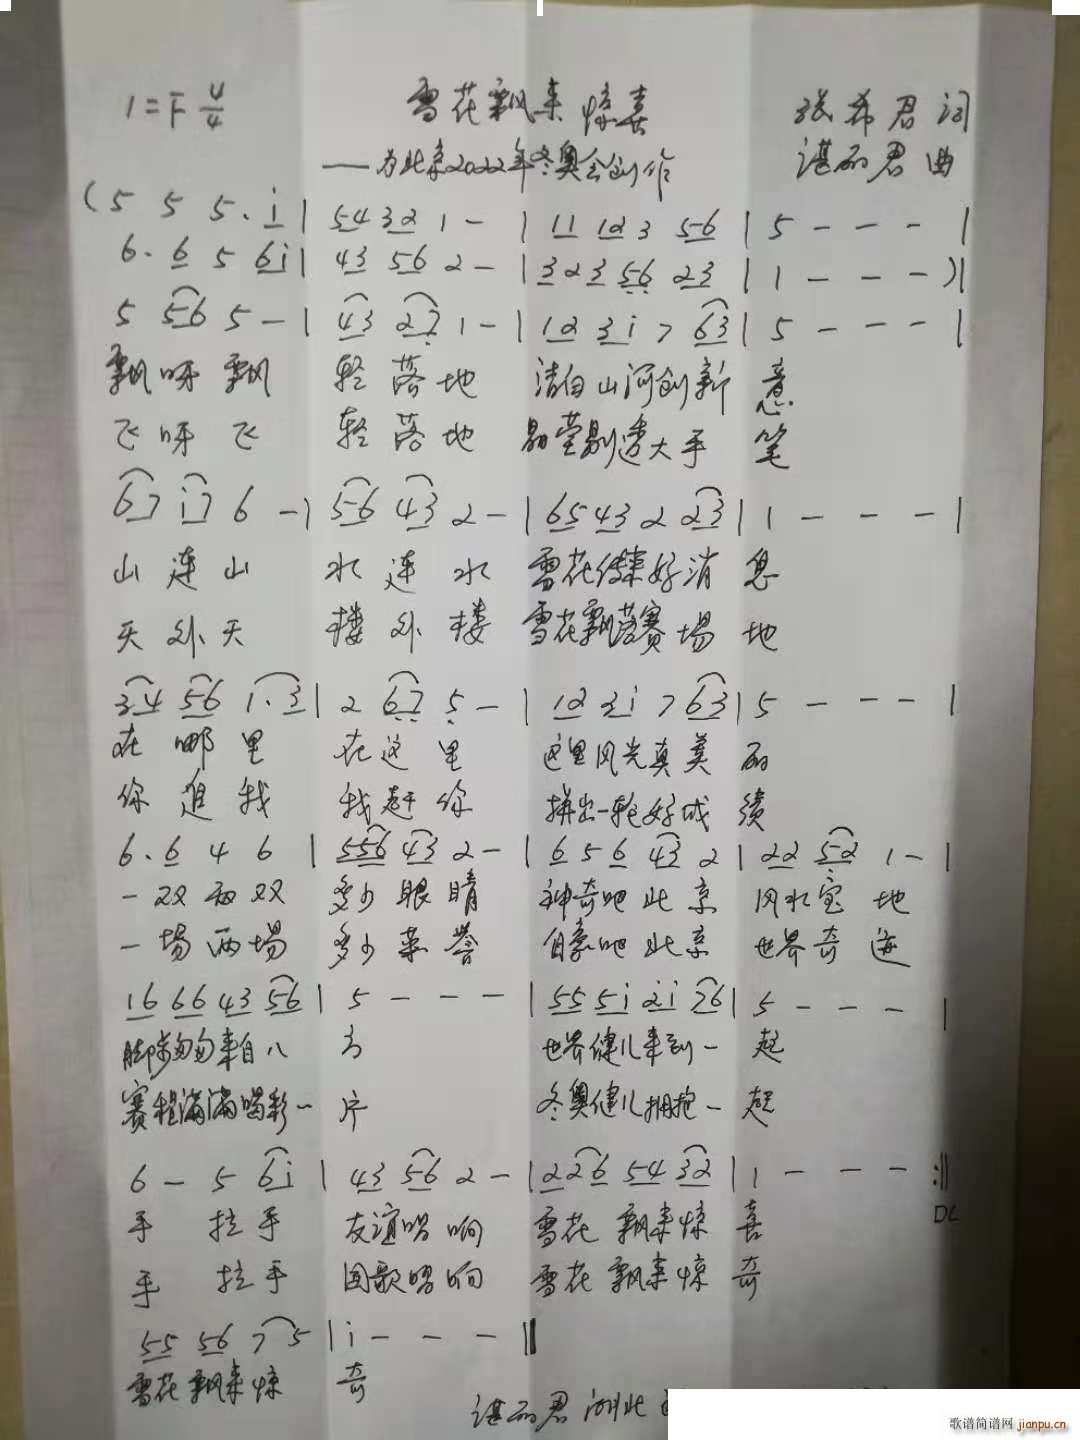 1=F 4/4 雪花飘来惊喜 张希君 词
——为北京2022年冬奥会创作 谌丽君 曲
(5 5 5. i | 54 32 1 - | 11 12 3 56 | 5 - - - |
6. 6 5 6i | 43 56 2 - | 323 56 23 | 1 - - - )|
5 56 5 - | 43 27 1 - | 12 3i 7 63 | 5 - - - |
飘呀飘 轻落地 洁白山河创新意
飞呀飞 轻落地 晶莹剔透大手笔
67 i7 6 - | 56 43 2 - | 65 43 2 23 | 1 - - - |
山连山 水连水 雪花传来好消息
天外天 楼外楼 雪花飘落赛场地
34 56 1.3 | 2 67 5 - | 12 3i 7 63 | 5 - - - |
在哪里 在这里 这里风光真美丽
你追我 我赶你 拼出一轮好成绩
6. 6 4 6 | 556 43 2 - | 6 5 6 43 2 | 22 52 1 - |
一双两双 多少眼睛 神奇吧北京 风水宝地
一场两场 多少荣誉 自豪吧北京 世界奇迹
16 66 43 56 | 5 - - - | 55 5i 2i 76 | 5 - - - |
脚步匆匆来自八方 世界健儿来到一起
赛程满满喝彩一片 冬奥健儿拥抱一起
6 - 5 6i | 43 56 2 - | 226 54 32 | 1 - - - :||
手 拉手 友谊唱响 雪花飘来惊喜 DC
手 拉手 国歌唱响 雪花飘来惊奇
55 56 7 5 | i - - - ||
雪花飘来惊奇
谌丽君 湖北
歌谱简谱网 jianpu.cn